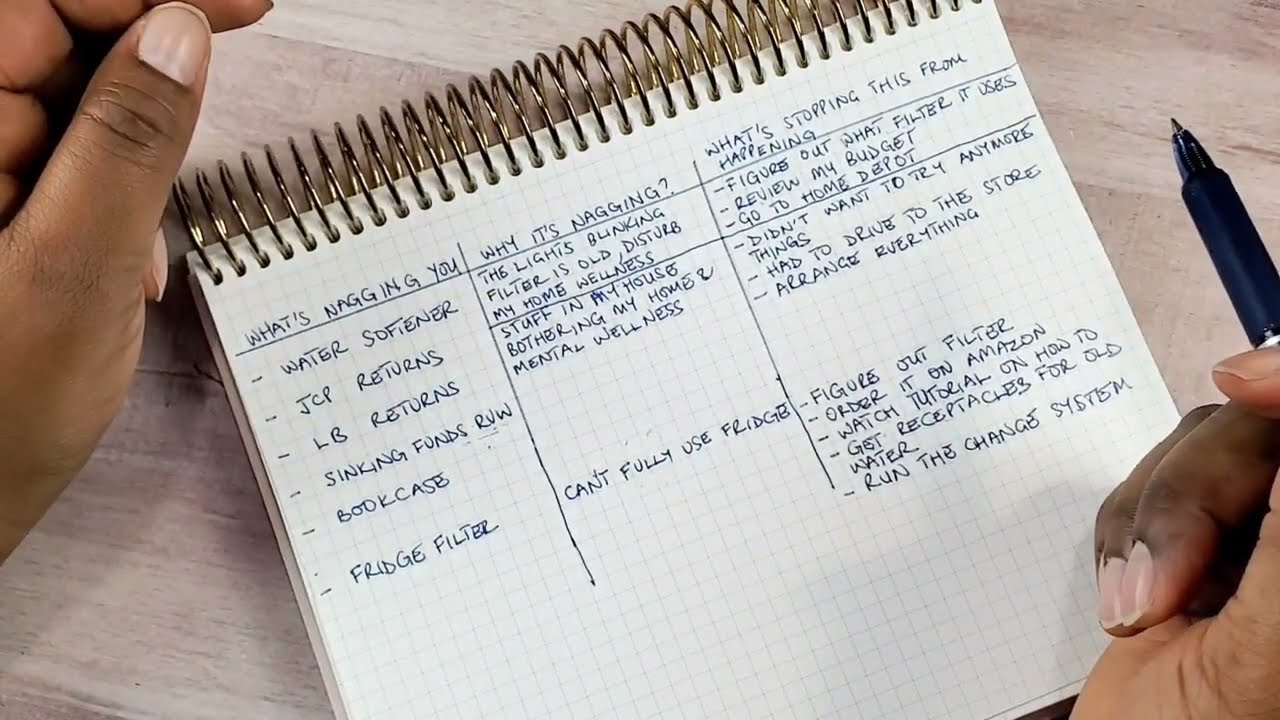 WHAT'S NAGGING YOU
- WATER SOFTENER
- JCP RETURNS
- LB RETURNS
- SINKING FUNDS RVW
- BOOKCASE
- FRIDGE FILTER
WHY IT'S NAGGING?
THE LIGHTS BLINKING
FILTER IS OLD, DISTURB
MY HOME WELLNESS
STUFF IN MY HOUSE
BOTHERING MY HOME &
MENTAL WELLNESS
CAN'T FULLY USE FRIDGE
WHAT'S STOPPING THIS FROM
HAPPENING
- FIGURE OUT WHAT FILTER IT USES
- REVIEW MY BUDGET
- GO TO HOME DEPOT
- DIDN'T WANT TO TRY ANYMORE
THINGS
- HAD TO DRIVE TO THE STORE
- ARRANGE EVERYTHING
- FIGURE OUT FILTER
- ORDER IT ON AMAZON
- WATCH TUTORIAL ON HOW TO
- GET RECEPTACLES FOR OLD
WATER
- RUN THE CHANGE SYSTEM